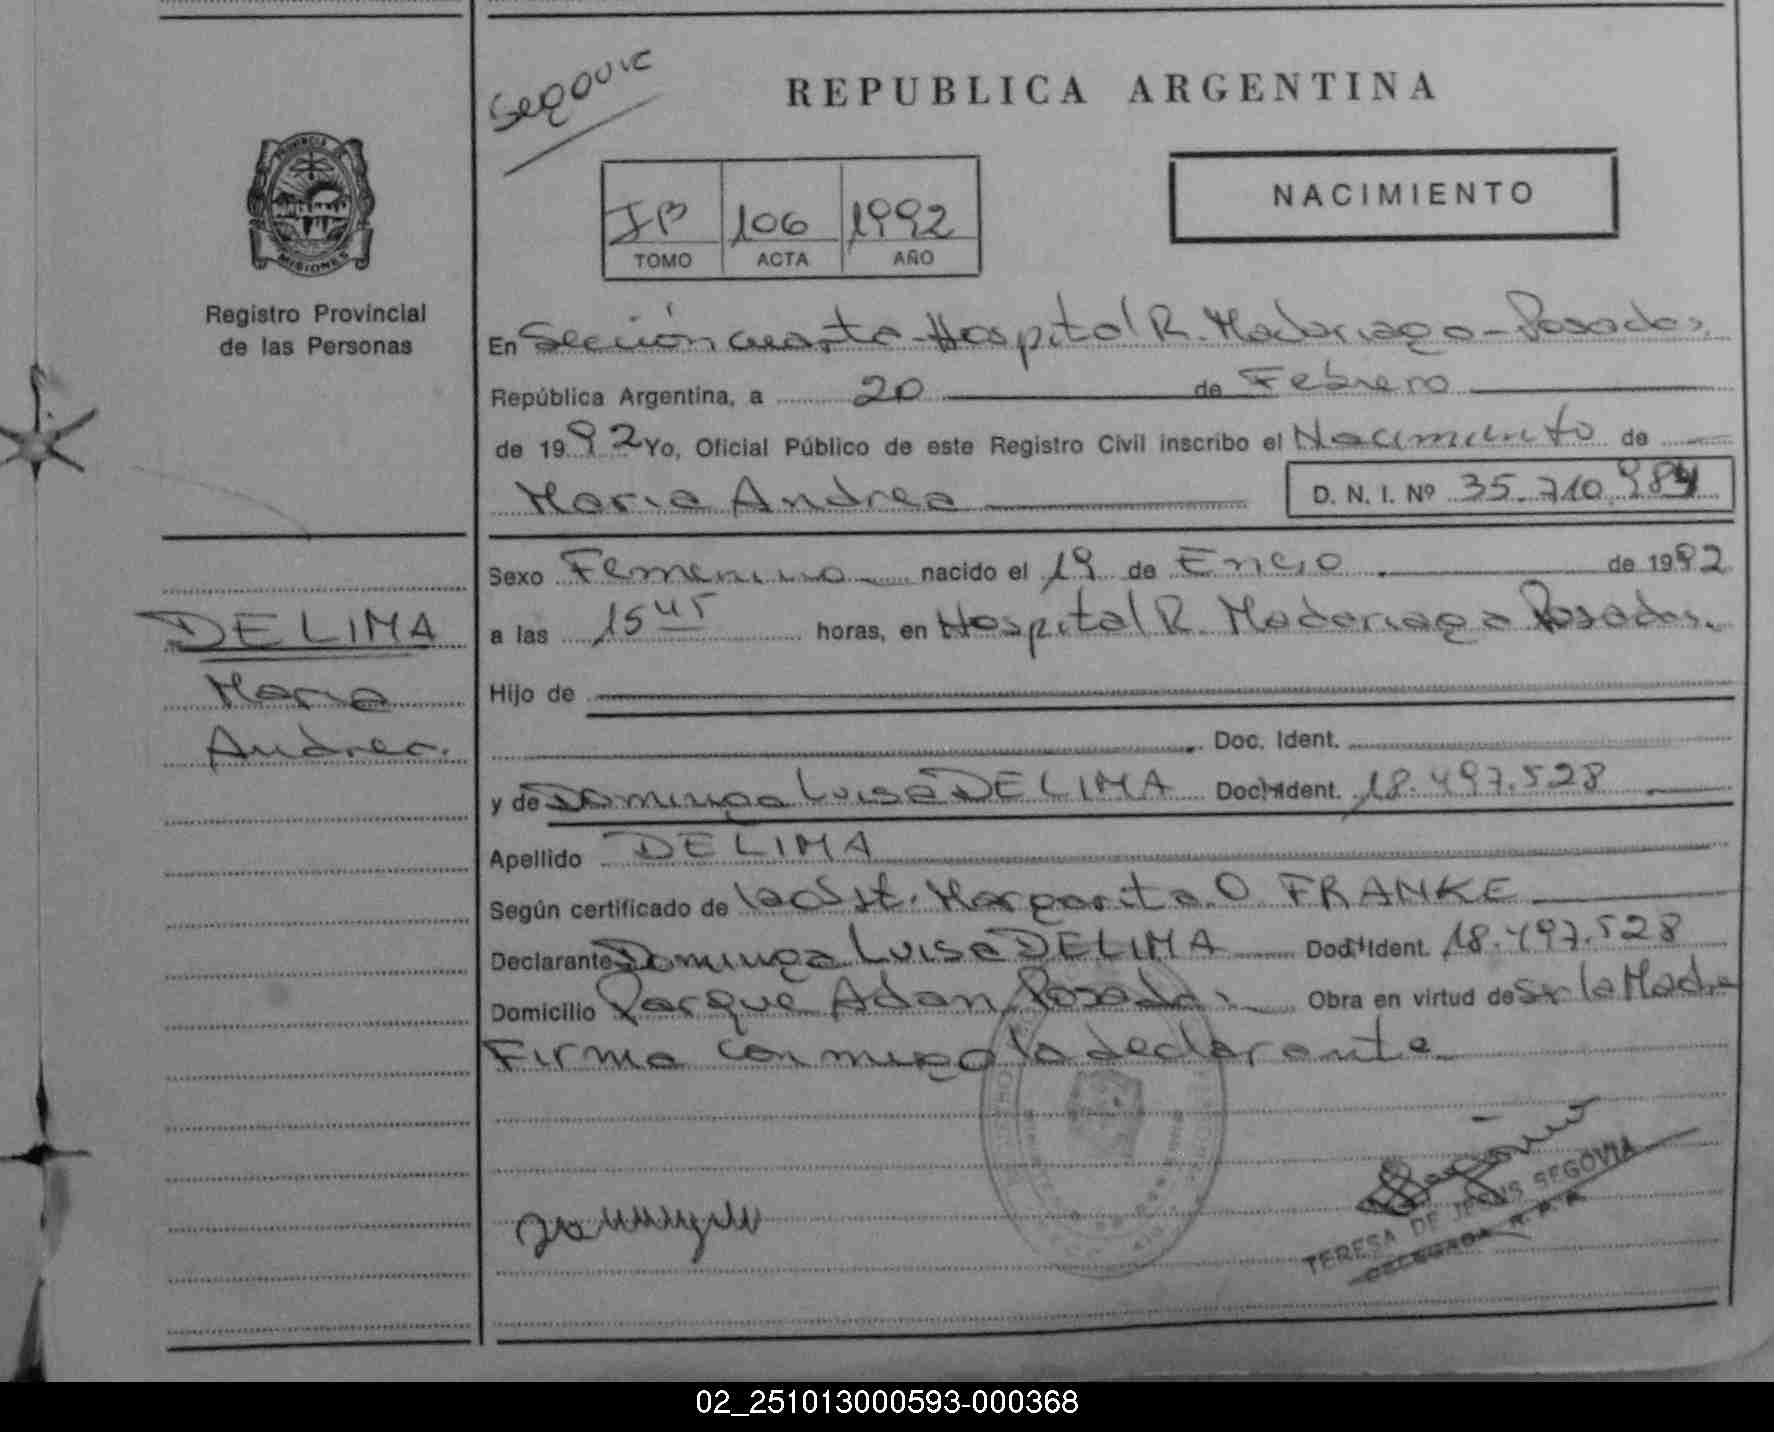 Segovia
REPUBLICA ARGENTINA
PROVINCIA DE
MISIONES
NACIMIENTO
106 1992
TOMO ACTA AÑO
Registro Provincial
de las Personas
En Sección cuarta - Hospital R. Madariaga - Posadas.
República Argentina, a 20 de Febrero
de 1992 Yo, Oficial Público de este Registro Civil inscribo el Nacimiento de
Maria Andrea D. N. I. Nº 35.710.984
Sexo Femenino nacido el 19 de Enero de 1992
a las 15 45 horas, en Hospital R. Madariaga Posadas.
Hijo de
Doc. Ident.
y de Dominga Luisa DE LIMA Doc. Ident. 18.497.528
Apellido DE LIMA
Según certificado de la Obst. Margarita O. FRANKE
Declarante Dominga Luisa DE LIMA Doc. Ident. 18.497.528
Domicilio Parque Adan Posadas. Obra en virtud de Ser la Madre
Firma conmigo la declarante
DE LIMA
Maria
Andrea.
TERESA DE JESUS SEGOVIA
DELEGADA R. P. P.
02_251013000593-000368